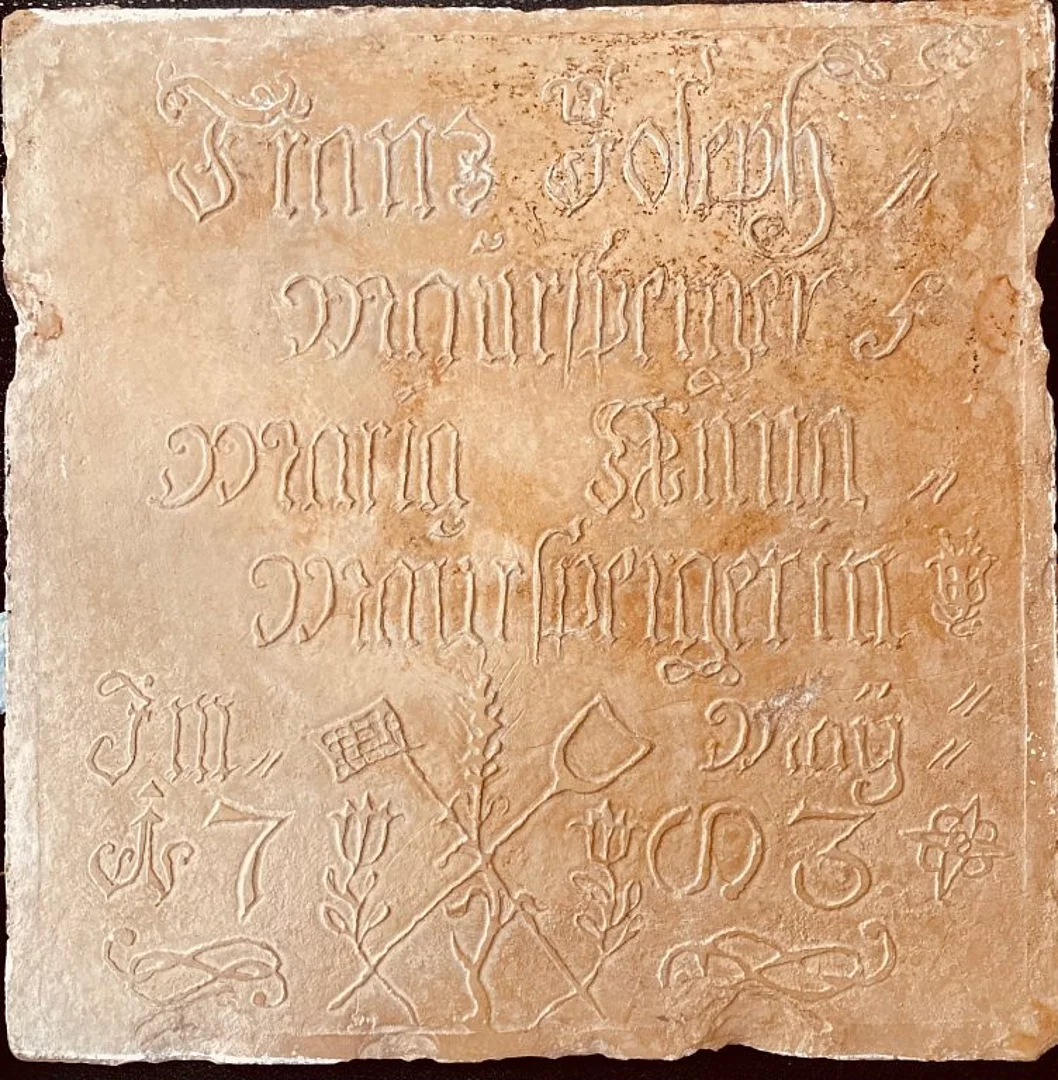 Franz Joseph //
Maŭrſperger
Maria Anna //
Maŭrſpergerin
Im // Maÿ //
17 83